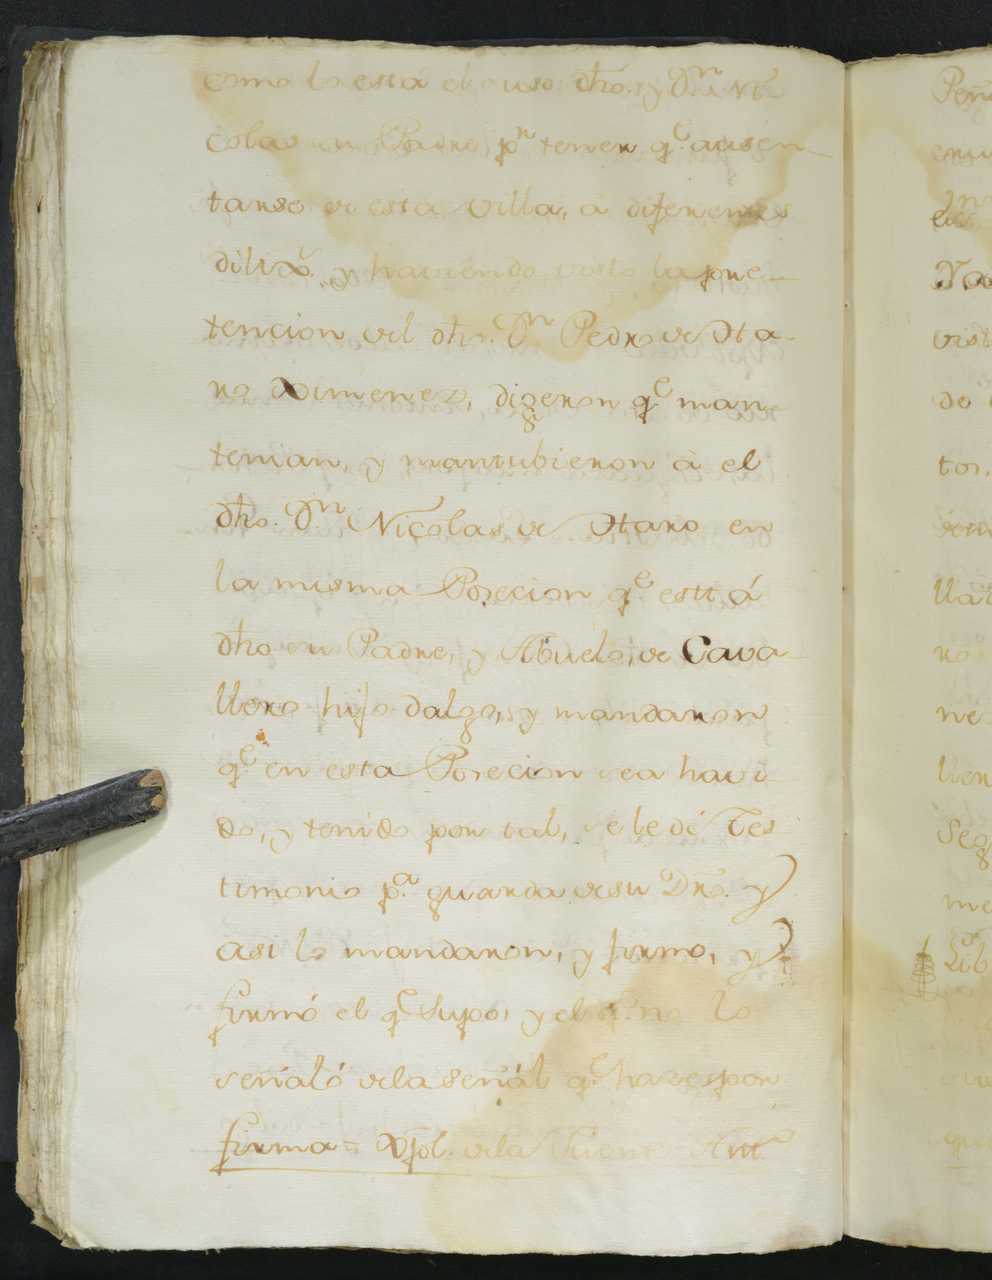 como lo está el suso dho. y Dn. Ni
colas su Padre, pr. tener qe. ausen
tarse de esta Villa, á diferentes
dilixs. y haviendo visto la pre
tencion del dho. Dn. Pedro de Ota
ro Ximenez, digeron qe. man
tenian, y mantubieron á el
dho. Dn. Nicolas de Otaro en
la misma Posecion qe. está
dho su Padre, y Abuelo, de Cava
llero hijo dalgo, y mandaron
qe. en esta Posecion sea havi
do, y tenido por tal, se le dé Tes
timonio pa. guarda de su Dro. y
asi lo mandaron, y firmo, y
firmó el qe. Supo, y el qe. no lo
señaló de la señál qe. haces por
firma = Xpl. de la Fuente Ante
Peñ
enu
Ya
vist
de
tos,
lla
ro
ne
ller
Seg
me
Lib